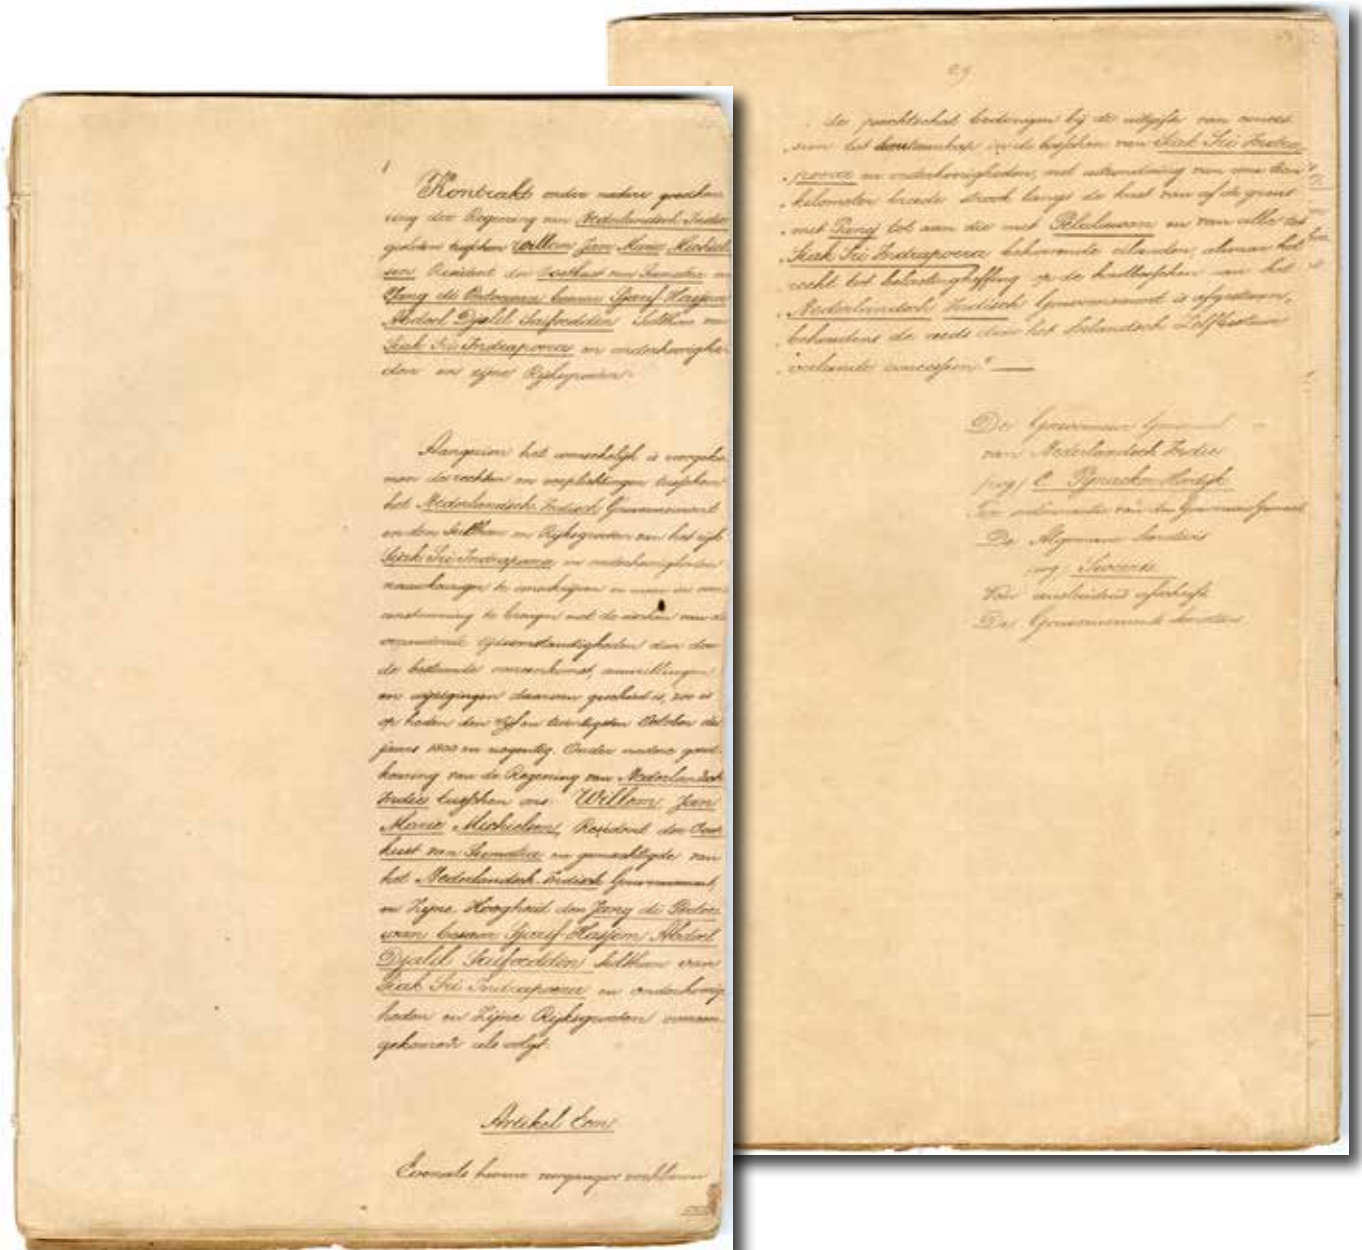 Kontrakt onder nadere goedkeu
ring der Regeering van Nederlandsch Indie
gesloten tusschen Willem Jan Marie Michiel
sen Resident der Oostkust van Sumatra en
Jang di Pertoewan besar Sjarif Hasjim
Abdoel Djalil Saifoeddin Sulthan van
Siak Sri Indrapoera en onderhoorighe
den en zijne Rijksgrooten.
Aangezien het wenschelijk is voorgeko
men de rechten en verplichtingen tusschen
het Nederlandsch Indisch Gouvernement
en den Sulthan en Rijksgrooten van het rijk
Siak Sri Indrapoera en onderhoorigheden
nauwkeuriger te omschrijven en meer in over
eenstemming te brengen met de eischen van de
veranderde tijdsomstandigheden dan door
de bestaande overeenkomst, aanvullingen
en wijzigingen daarvan geschied is, zoo is
op heden den vijf en twintigsten October des
jaars 1800 en negentig. Onder nadere goed
keuring van de Regeering van Nederlandsch
Indie tusschen ons Willem Jan
Marie Michielsen, Resident der Oost
kust van Sumatra en gemachtigde van
het Nederlandsch Indisch Gouvernement,
en Zijne Hoogheid den Jang di Pertoe
wan besar Sjarif Hasjim Abdoel
Djalil Saifoeddin Sulthan van
Siak Sri Indrapoera en onderhoorig
heden en Zijne Rijksgrooten overeen
gekomen als volgt.
Artikel Een
Evenals hunne voorgangers verklaren
29
de pachtschat bedongen bij de uitgifte van conces
sien tot houtaankap in de bosschen van Siak Sri Indra
poera en onderhoorigheden, met uitzondering van eene tien
kilometer breede strook langs de kust van af de grens
met Panej tot aan die met Pelalawan en van alle tot
Siak Sri Indrapoera behoorende eilanden, alwaar het
recht tot belastingheffing op de houtbosschen aan het
Nederlandsch Indisch Gouvernement is afgestaan,
behoudens de reeds door het Inlandsch Zelfbestuur
verleende concessien."
De Gouverneur Generaal
van Nederlandsch Indie
(wg) C. Pijnacker Hordijk
Ter ordonnantie van den Gouverneur Generaal
De Algemeene Secretaris
(wg)
Voor eensluidend afschrift
De Gouvernements Secretaris